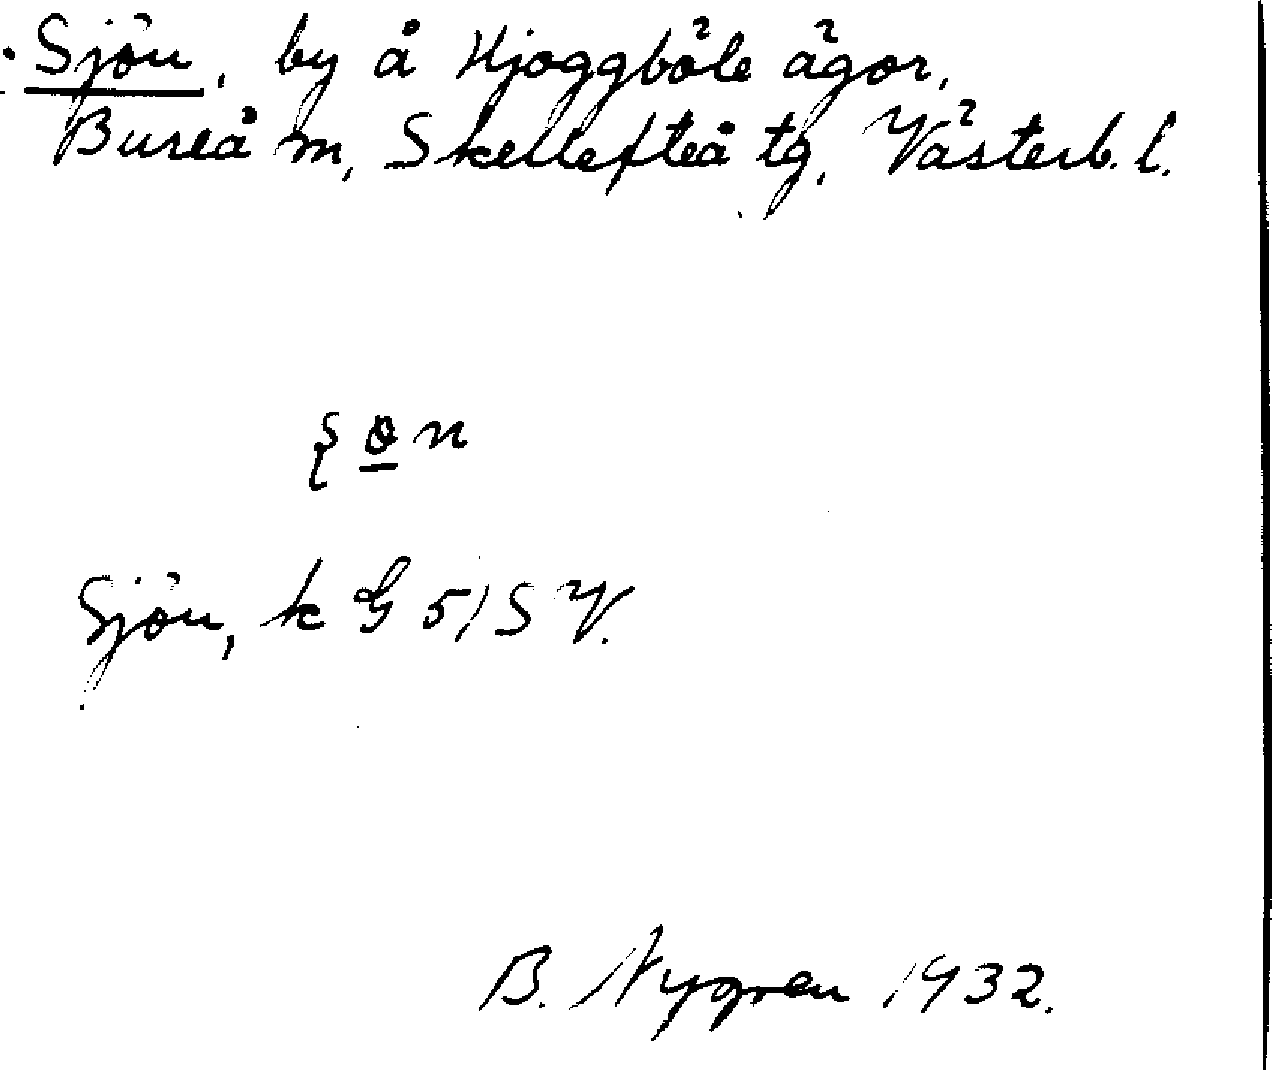 Sjön, by å Hjoggböle ägor,
Bureå m, Skellefteå tg, Västerb. l.
Sjön, k G 5/SV.
B. Nygren 1932.